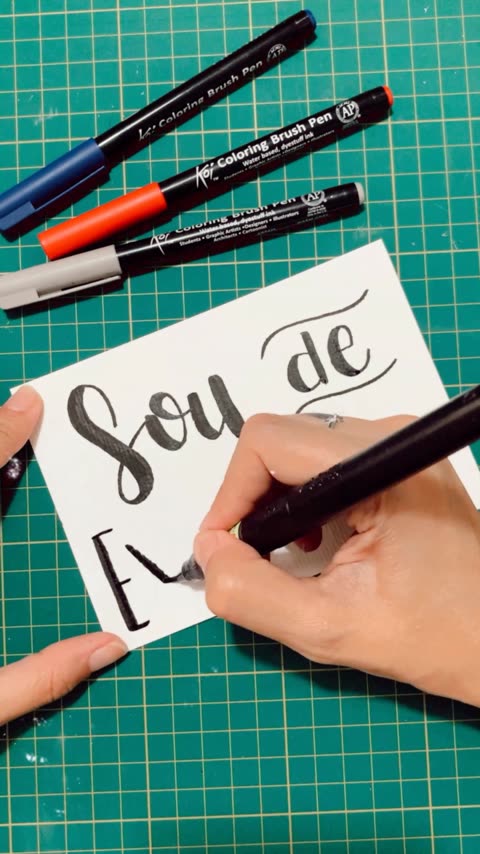 Koi Coloring Brush Pen
Koi Coloring Brush Pen
Water based, dyestuff ink
AP
Koi Coloring Brush Pen
Water based, dyestuff ink
Students • Graphic Artists • Designers • Illustrators
Architects • Cartoonist
AP
Sou de
E